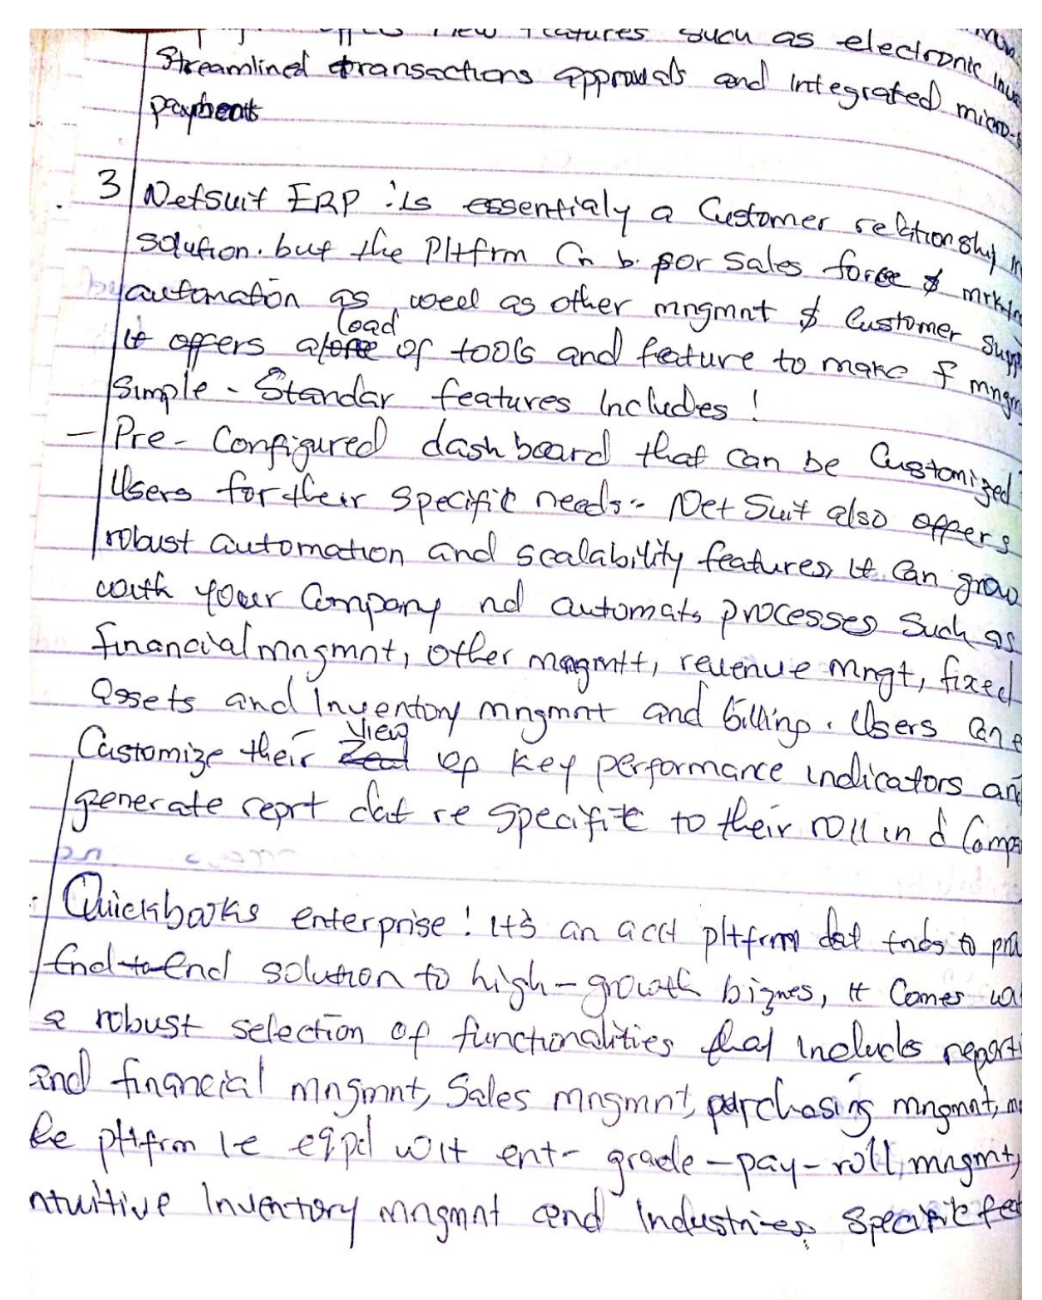 new features such as electronic
Streamlined transactions approvals and integrated micro-
payment
3 Netsuit ERP is essentialy a Customer reltionshp
solution. but the Pltfrm Cn b for sales force & mrktn
automation as well as other mngmnt & Customer supp
load
It offers a of tools and feature to make f mngm
Simple - Standar features Includes!
- Pre- Configured dashboard that can be Customized
Users for their specific needs:- Net Suit also offers
robust automation and scalability features, It Can grow
with your Company nd automats processes such as
financial mngmnt, other mngmtt, revenue mngt, fixed
assets and Inventory mngmnt and billing. Users Can
View
Customize their of key performance indicators an
generate reprt dat re specifit to their roll in d Comp
Quickbooks enterprise! its an acct pltfrm dat tnds to
End-to-End solution to high-growth biznes, It Comes
a robust selection of functionalities that includs reporti
and financial mngmnt, Sales mngmnt, purchasing mngmnt,
pltfrm is eqpd wit ent- grade-pay-roll, mngmt,
ntuitive Inventory mngmnt and Industries specifit fea